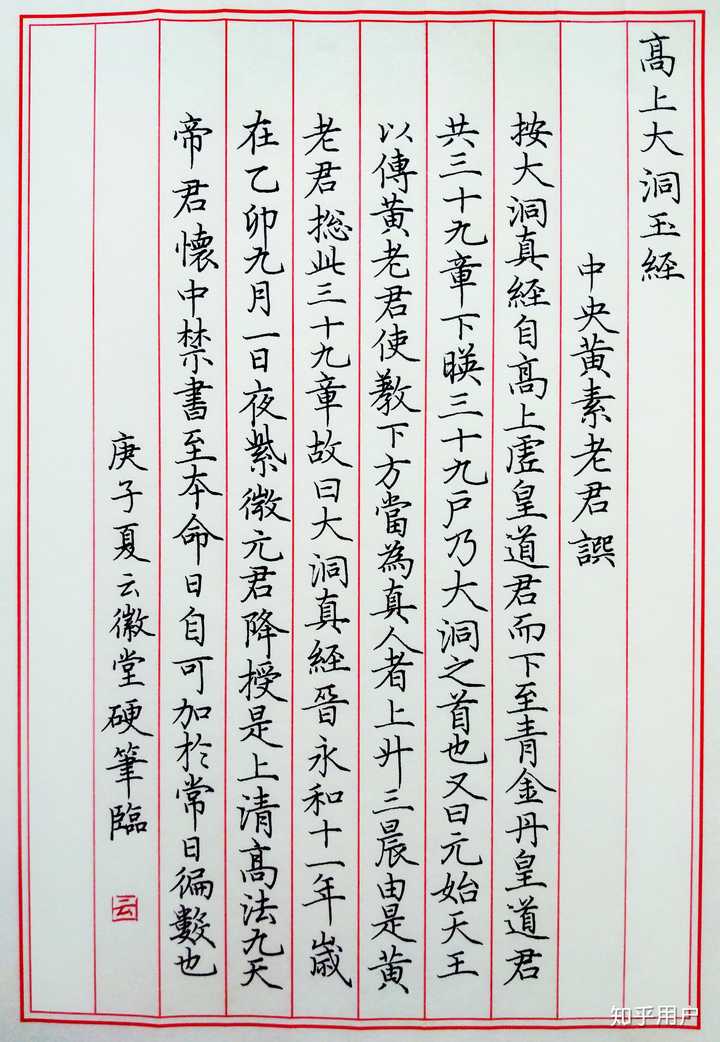 高上大洞玉経
中央黃素老君譔
按大洞真経自高上虛皇道君而下至青金丹皇道君
共三十九章下暎三十九戶乃大洞之首也又曰元始天王
以傳黃老君使教下方當為真人者上升三晨由是黃
老君揔此三十九章故曰大洞真経晉永和十一年歲
在乙卯九月一日夜紫微元君降授是上清高法九天
帝君懷中禁書至本命日自可加於常日徧數也
庚子夏云徽堂硬筆臨
云
知乎用户